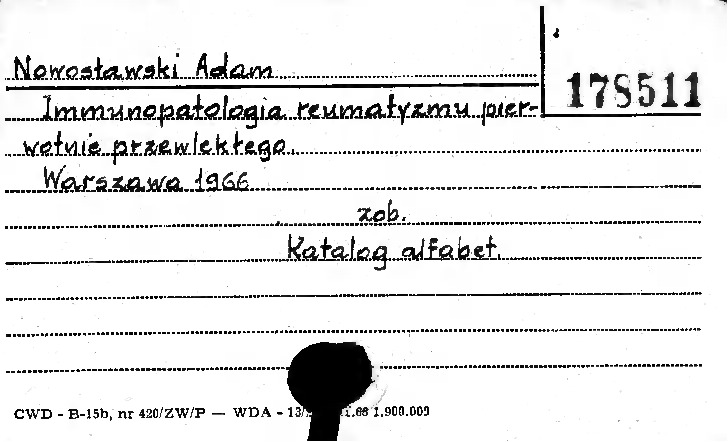 Nowosławski Adam
178511
Immunopatologia reumatyzmu pier-
wotnie przewlekłego.
Warszawa 1966
zob.
Katalog alfabet.
CWD - B-15b, nr 420/ZW/P — WDA - 13/ 1.66 1.900.000